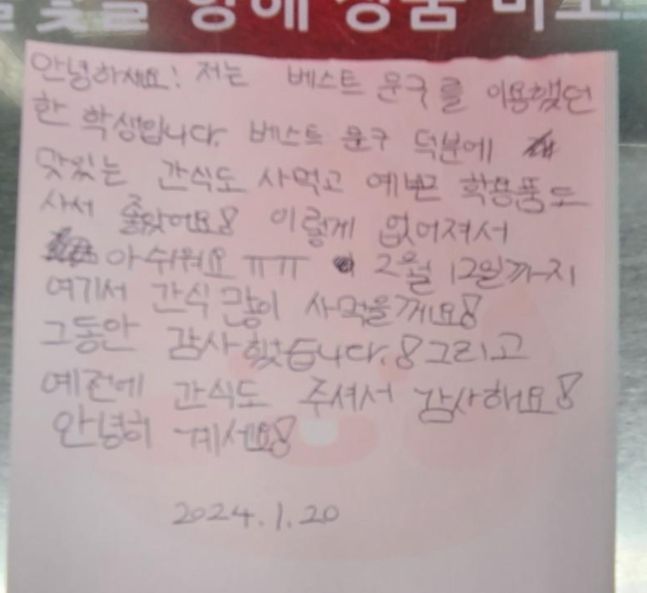 을 향해 상품
안녕하세요! 저는 베스트 문구를 이용했던
한 학생입니다. 베스트 문구 덕분에
맛있는 간식도 사먹고 예쁜 학용품도
사서 좋았어요! 이렇게 없어져서
아쉬워요 ㅠㅠ 2월 12일까지
여기서 간식 많이 사먹을께요!
그동안 감사했습니다.! 그리고
예전에 간식도 주셔서 감사해요!
안녕히 계세요!
2024.1.20